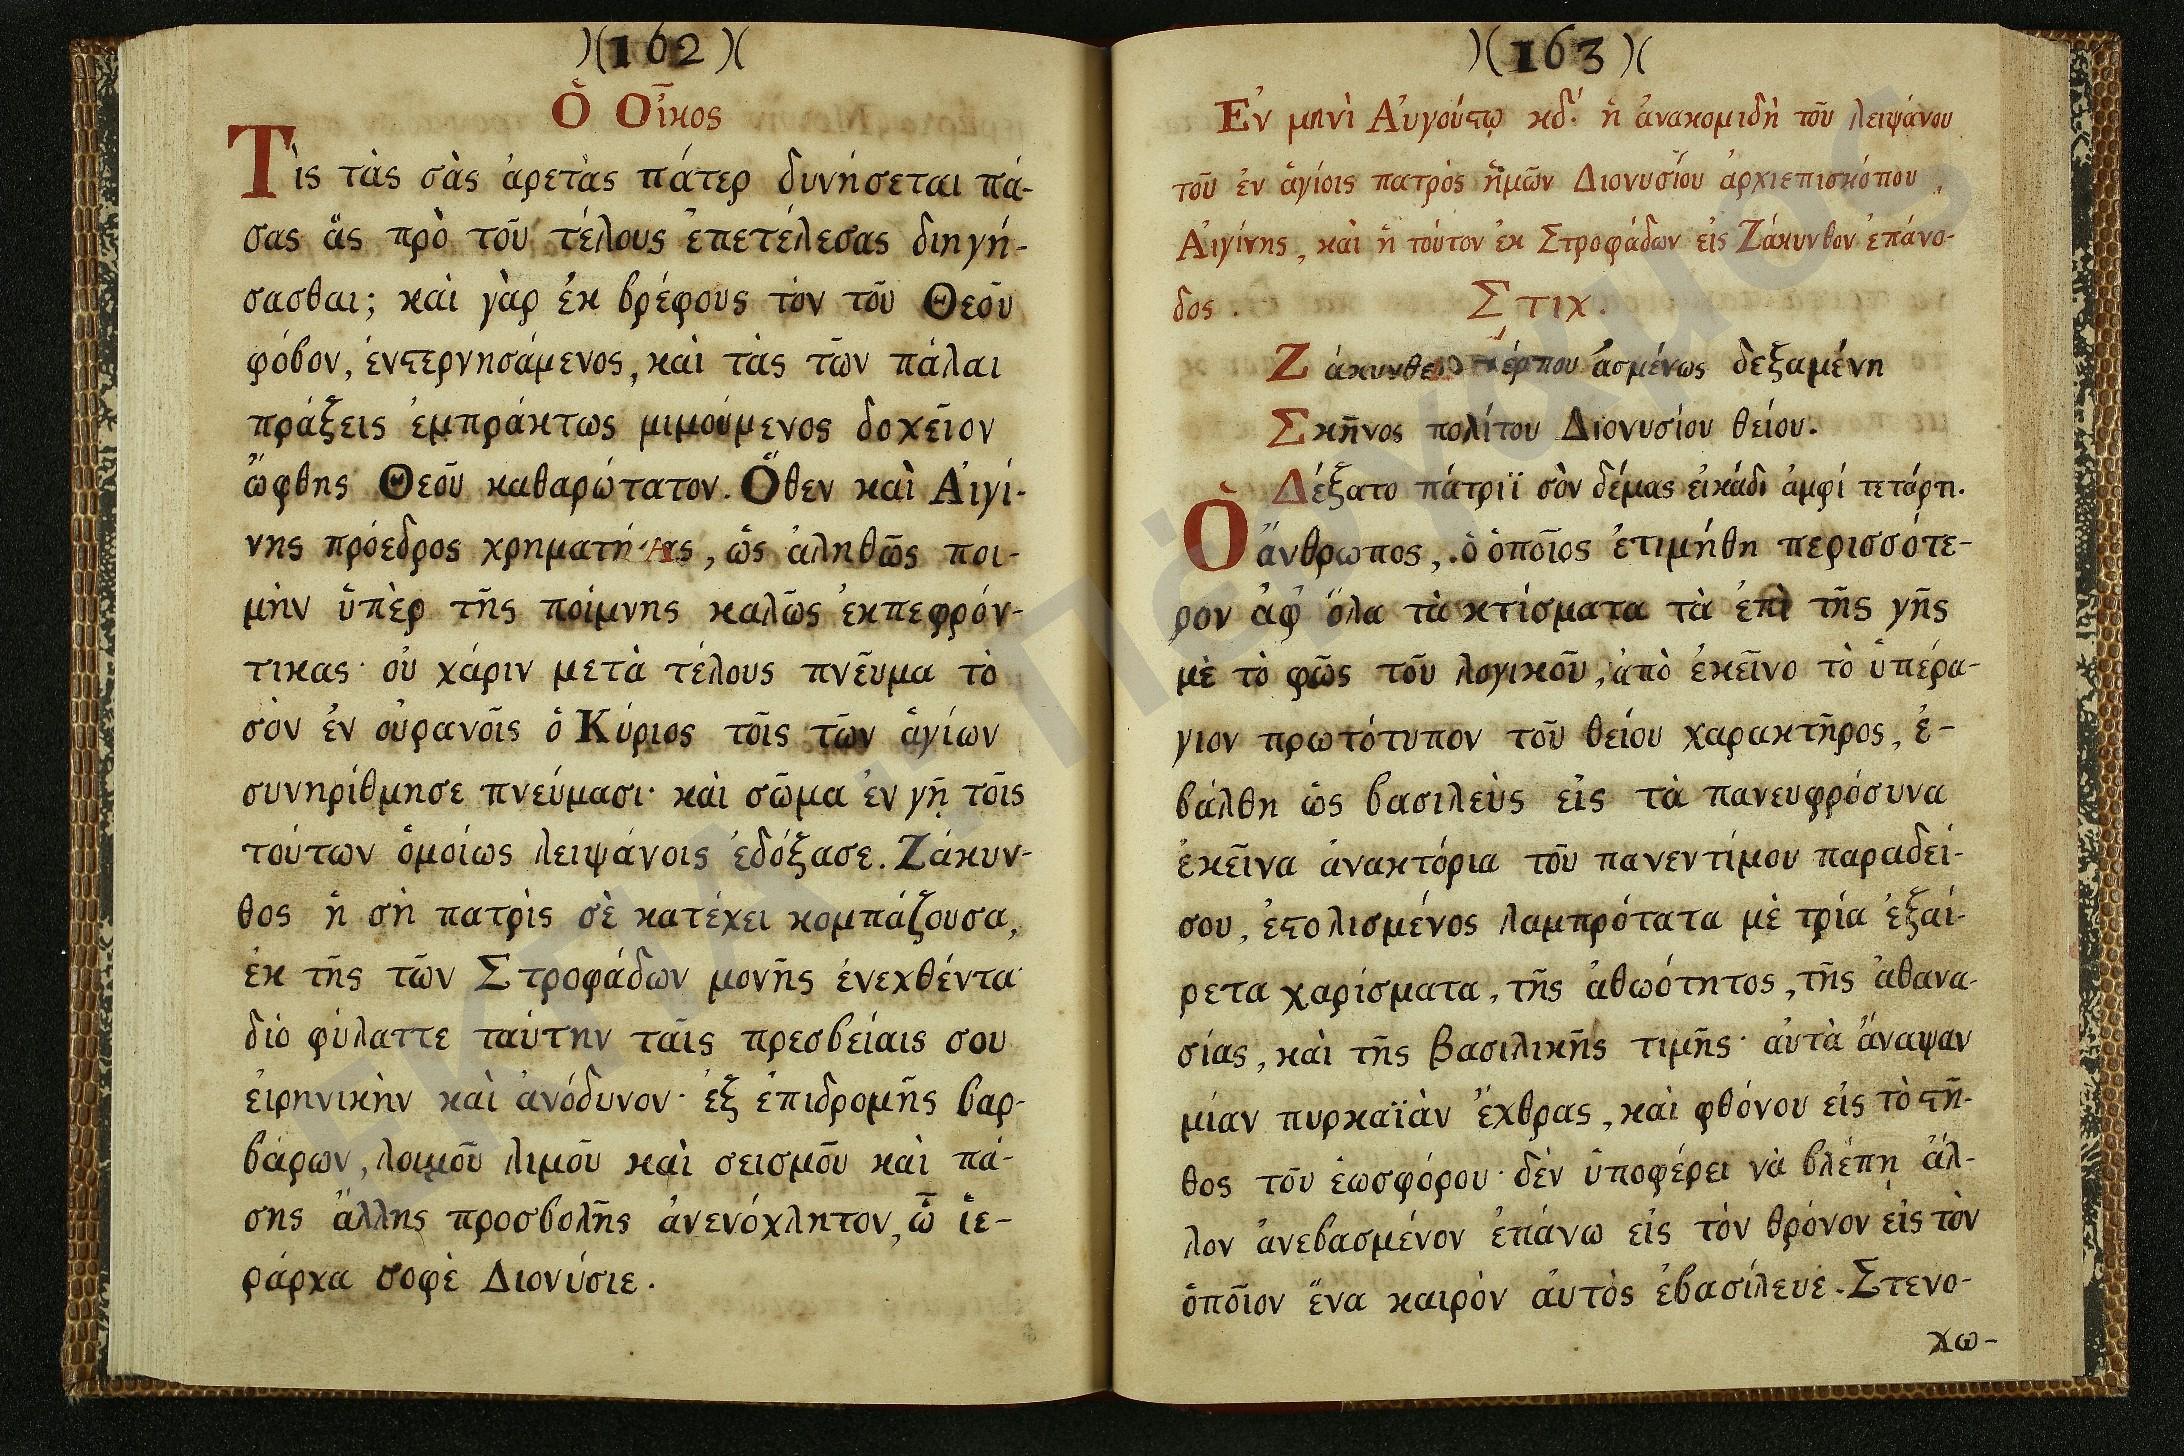 )(162)(
Ὁ Οἶκος
Τὶς τὰς σὰς ἀρετὰς πάτερ δυνήσεται πά-
σας ἃς πρὸ τοῦ τέλους ἐπετέλεσας διηγή-
σασθαι; καὶ γὰρ ἐκ βρέφους τὸν τοῦ Θεοῦ
φόβον, ἐνστερνησάμενος, καὶ τὰς τῶν πάλαι
πράξεις ἐμπράκτως μιμούμενος δοχεῖον
ὤφθης Θεοῦ καθαρώτατον. Ὅθεν καὶ Αἰγί-
νης πρόεδρος , ὡς ἀληθῶς ποι-
μὴν ὑπὲρ τῆς ποίμνης καλῶς ἐκπεφρόν-
τικας· οὗ χάριν μετὰ τέλους πνεῦμα τὸ
σὸν ἐν οὐρανοῖς ὁ Κύριος τοῖς τῶν ἁγίων
συνηρίθμησε πνεύμασι· καὶ σῶμα ἐν γῇ τοῖς
τούτων ὁμοίως λειψάνοις ἐδόξασε. Ζάκυν-
θος ἡ σὴ πατρὶς σὲ κατέχει κομπάζουσα,
ἐκ τῆς τῶν Στροφάδων μονῆς ἐνεχθέντα·
διὸ φύλαττε ταύτην ταῖς πρεσβείαις σου
εἰρηνικὴν καὶ ἀνόδυνον· ἐξ ἐπιδρομῆς βαρ-
βάρων, λοιμοῦ λιμοῦ καὶ σεισμοῦ καὶ πά-
σης ἄλλης προσβολῆς ἀνενόχλητον, ὦ ἱε-
ράρχα σοφὲ Διονύσιε.
)(163)(
Ἐν μηνὶ Αὐγούστῳ κδ΄· ἡ ἀνακομιδὴ τοῦ λειψάνου
τοῦ ἐν ἁγίοις πατρὸς ἡμῶν Διονυσίου ἀρχιεπισκόπου
Αἰγίνης, καὶ ἡ τούτου ἐκ Στροφάδων εἰς Ζάκυνθον ἐπάνο-
δος.
Στιχ.
ἀσμένως δεξαμένη
Σκῆνος πολίτου Διονυσίου θείου.
Δέξατο πάτριϊ σὸν δέμας εἰκάδι ἀμφί τετάρτῃ.
Ὁ ἄνθρωπος, ὁ ὁποῖος ἐτιμήθη περισσότε-
ρον ἀφ' ὅλα τὰ κτίσματα τὰ ἐπὶ τῆς γῆς
μὲ τὸ φῶς τοῦ λογικοῦ, ἀπὸ ἐκεῖνο τὸ ὑπέρα-
γιον πρωτότυπον τοῦ θείου χαρακτῆρος, ἐ-
βάλθη ὡς βασιλεὺς εἰς τὰ πανευφρόσυνα
ἐκεῖνα ἀνακτόρια τοῦ πανεντίμου παραδεί-
σου, ἐστολισμένος λαμπρότατα μὲ τρία ἐξαί-
ρετα χαρίσματα, τῆς ἀθωότητος, τῆς ἀθανα-
σίας, καὶ τῆς βασιλικῆς τιμῆς· αὐτὰ ἄναψαν
μίαν πυρκαϊὰν ἔχθρας, καὶ φθόνου εἰς τὸ στῆ-
θος τοῦ ἑωσφόρου· δὲν ὑποφέρει νὰ βλέπῃ ἄλ-
λον ἀνεβασμένον ἐπάνω εἰς τὸν θρόνον εἰς τὸν
ὁποῖον ἕνα καιρὸν αὐτὸς ἐβασίλευε. Στενο-
χω-